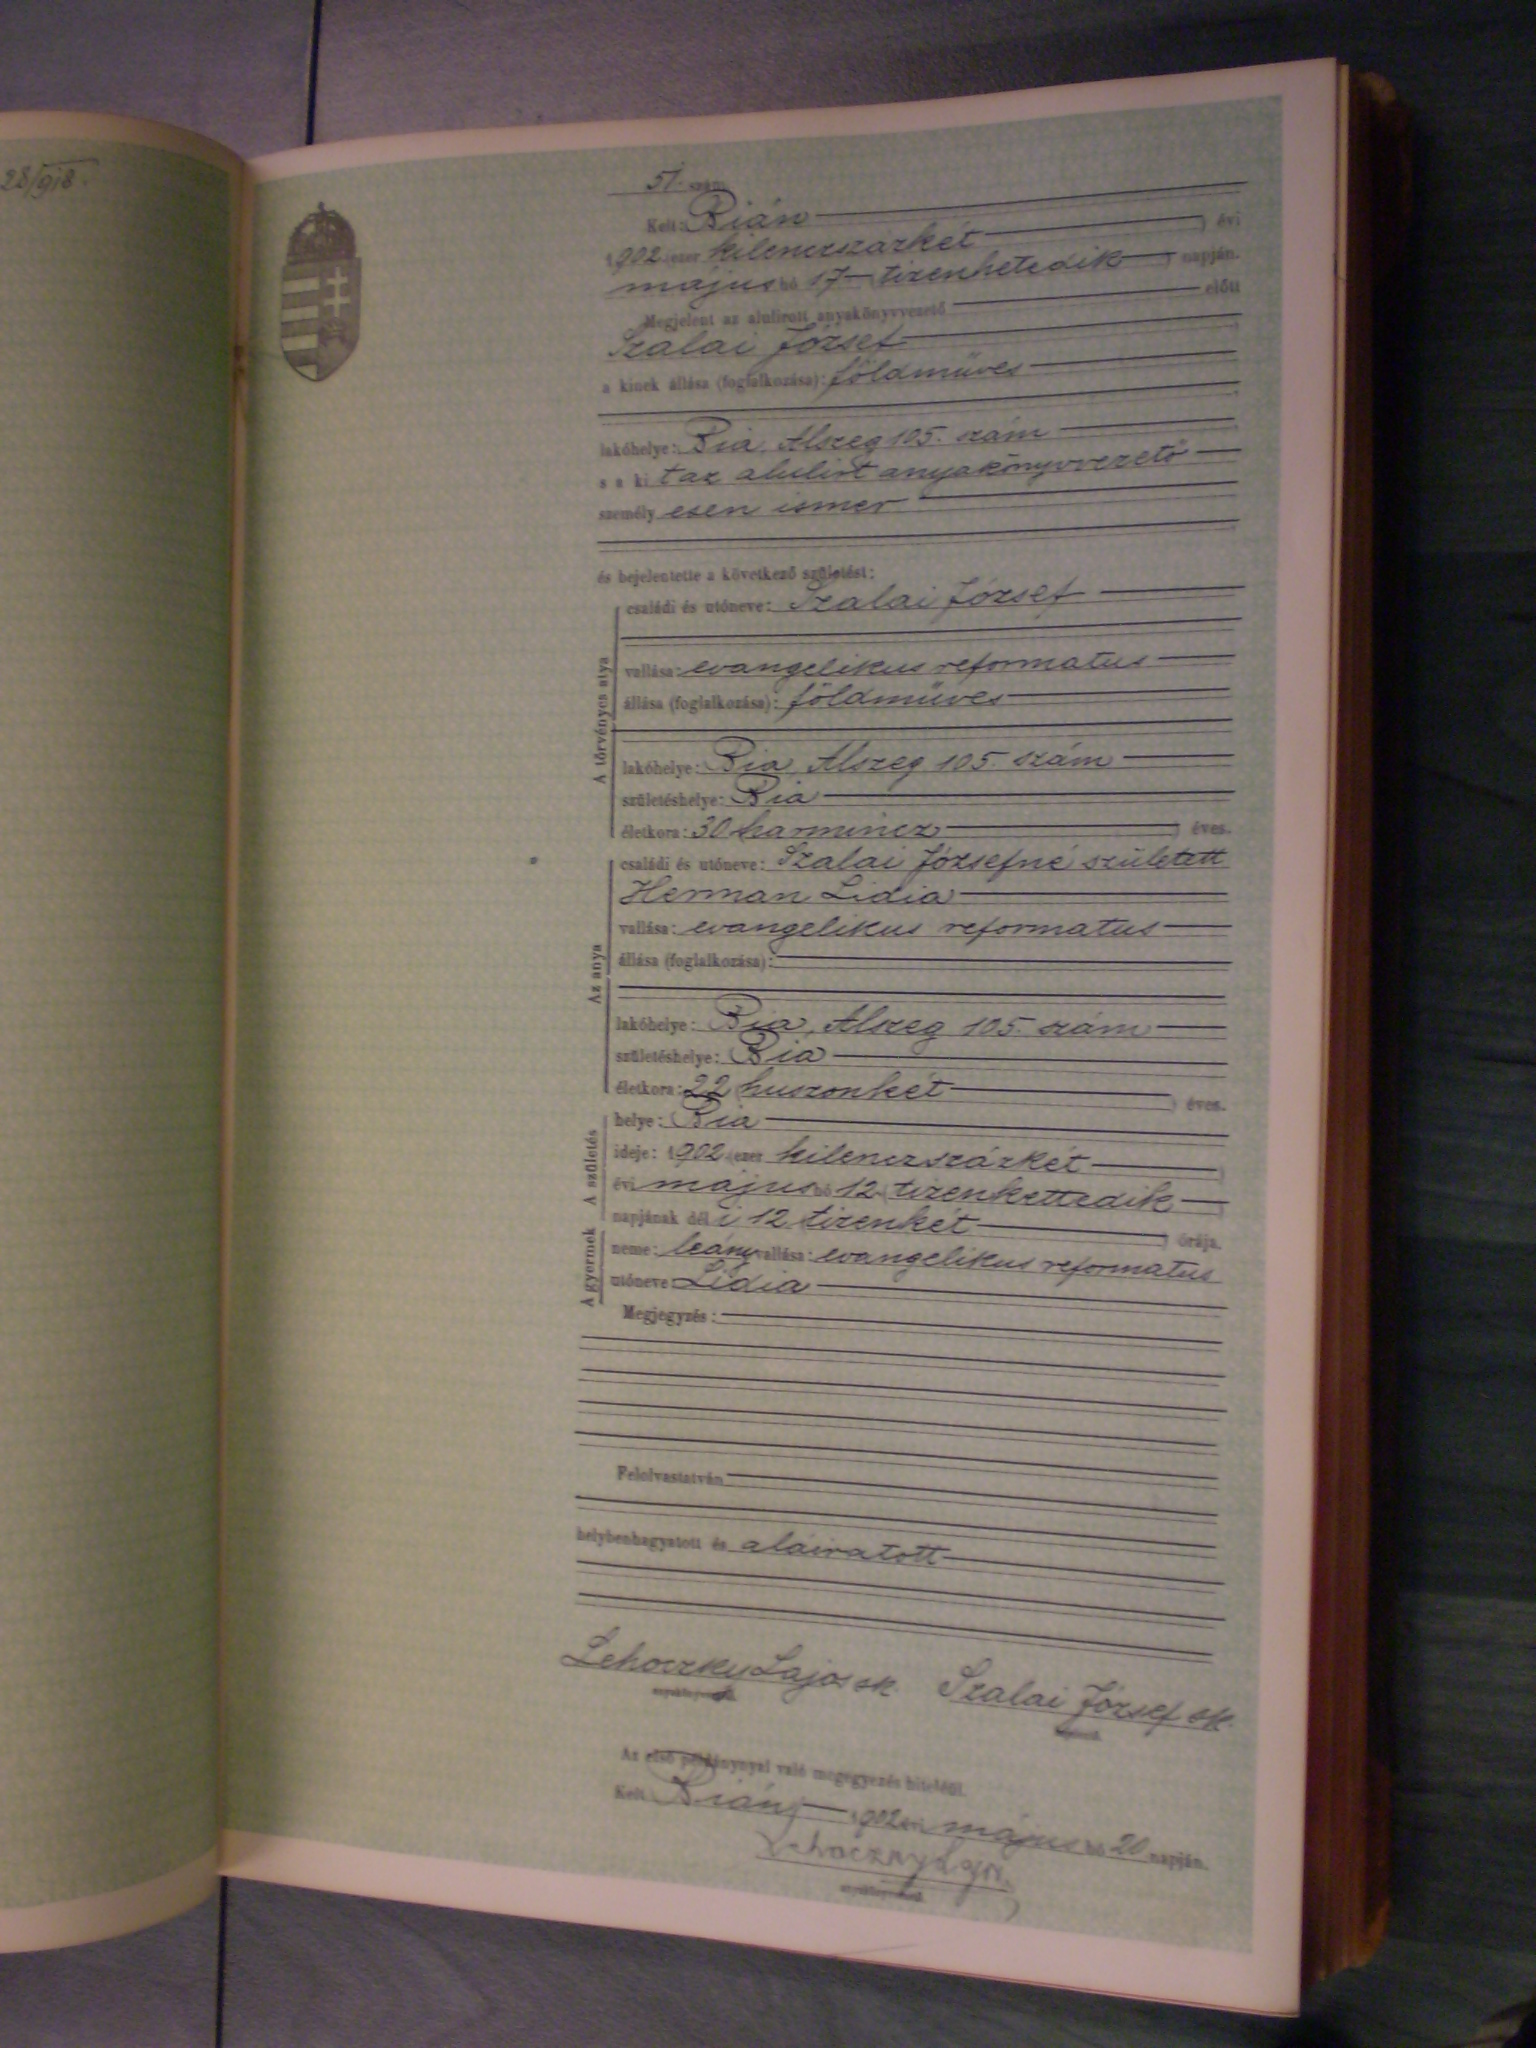 28/918.
51. szám
Kelt: Bián
1902 (ezer kilenczszázkét) évi
május hó 17 (tizenhetedik) napján.
Megjelent az alulirott anyakönyvvezető előtt
Szalai József
a kinek állása (foglalkozása): földmüves
lakóhelye: Bia, Alszeg 105. szám
s a ki t az alulirt anyakönyvvezető
személy esen ismer
és bejelentette a következő születést:
A törvényes atya
családi és utóneve: Szalai József
vallása: evangelikus reformatus
állása (foglalkozása): földmüves
lakóhelye: Bia, Alszeg 105. szám
születéshelye: Bia
életkora: 30 (harmincz) éves.
Az anya
családi és utóneve: Szalai Józsefné született
Herman Lidia
vallása: evangelikus reformatus
állása (foglalkozása):
lakóhelye: Bia, Alszeg 105. szám
születéshelye: Bia
életkora: 22 (huszonkét) éves.
A születés
helye: Bia
ideje: 1902 (ezer kilenczszázkét)
évi május hó 12 (tizenkettedik)
napjának dél i 12 (tizenkét) órája.
A gyermek
neme: leány vallása: evangelikus reformatus
utóneve: Lidia
Megjegyzés:
Felolvastatván
helybenhagyatott és aláiratott
Lehoczky Lajos sk. Szalai József sk.
anyakönyvvezető.
Az első példánynyal való megegyezés hiteléül.
Kelt Bián, 1902 évi május hó 20 napján.
Lehoczky Lajos
anyakönyvvezető.